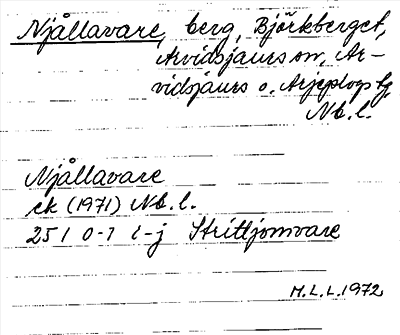 Njållavare, berg, Björkberget,
Arvidsjaurs sn, Ar-
vidsjaurs o. Arjeplogs tg,
Nb. l.
Njållavare
ek (1971) Nb. l.
25 I 0-1 i-j Strittjomvare
M.L.L. 1972